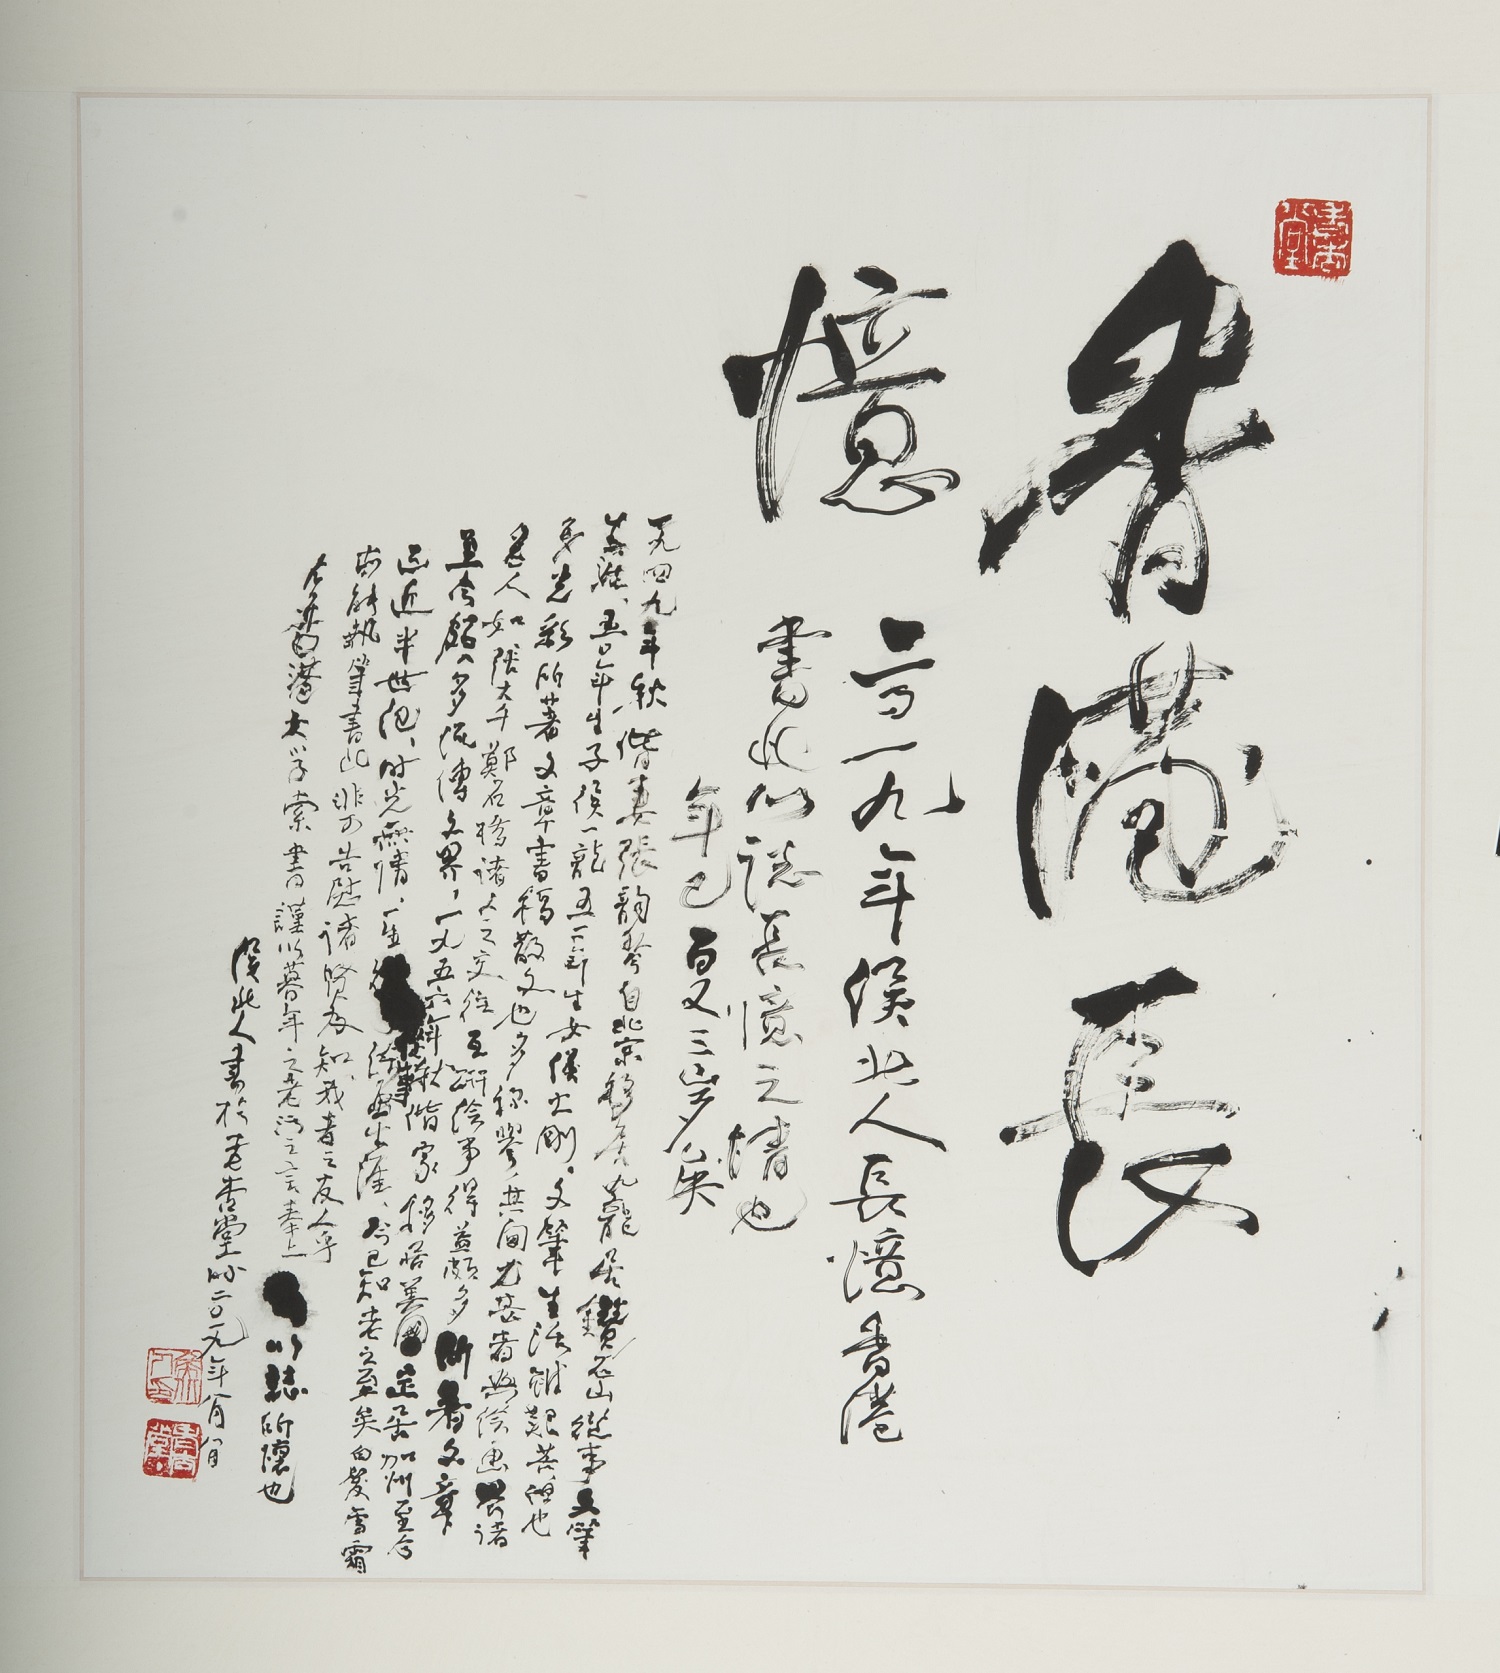 香港長
憶
二〇一九年侯北人長憶香港
書此以誌長憶之情也
年已百又三歲矣
一九四九年秋偕妻張韻琴自北京移居九龍居鑽石山從事文筆
生涯、五〇年生子侯一龍五一年生女侯大剛、文筆生活雖艱苦但也
多光彩所著文章書稿散文也多稱譽其間尤甚者與繪畫界諸
名人如張大千鄭石橋諸人之交往互研繪事得益頗多所著文章
至今頗多流傳文界、一九五六年秋偕家移居美國定居加州至今
已近半世紀、時光無情、一生 今已知老之至矣白髮雪霜
尚能執筆書此非可告慰諸賢友知我者之友人乎
今香港大學索書謹以暮年之老 之言奉上 以誌所懷也
侯北人書於老杏堂時二〇一九年 月 日
老杏堂